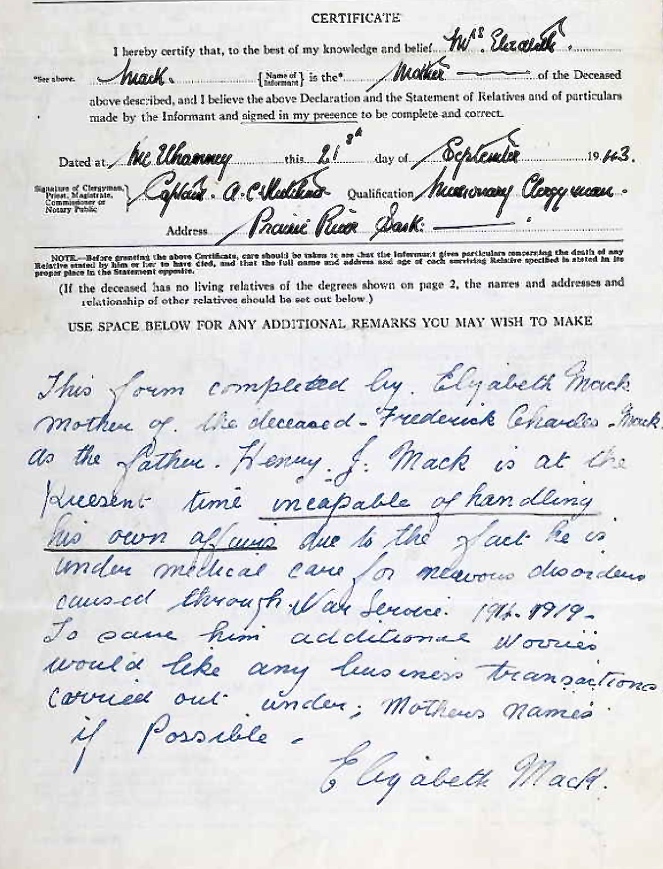 CERTIFICATE
I hereby certify that, to the best of my knowledge and belief Mrs. Elizabeth
*See above. Mack. {Name of Informant} is the* Mother of the Deceased
above described, and I believe the above Declaration and the Statement of Relatives and of particulars
made by the Informant and signed in my presence to be complete and correct.
Dated at McElhanney this 21st day of September 1943.
Signature of Clergyman, Priest, Magistrate, Commissioner or Notary Public } Captain. A.C. Qualification Missionary Clergyman.
Address Prairie River Sask.
NOTE.—Before granting the above Certificate, care should be taken to see that the Informant gives particulars concerning the death of any
Relative stated by him or her to have died, and that the full name and address and age of each surviving Relative specified is stated in its
proper place in the Statement opposite.
(If the deceased has no living relatives of the degrees shown on page 2, the names and addresses and
relationship of other relatives should be set out below.)
USE SPACE BELOW FOR ANY ADDITIONAL REMARKS YOU MAY WISH TO MAKE
This form completed by. Elizabeth Mack
Mother of. the deceased - Frederick Charles. Mack.
As the father. Henry. J. Mack is at the
present time incapable of handling
his own affairs due to the fact he is
under medical care for nervous disorders
caused through. War Service. 1916-1919-
To save him additional Worries
would like any business transactions
carried out under; Mothers names
if Possible.
Elizabeth Mack.